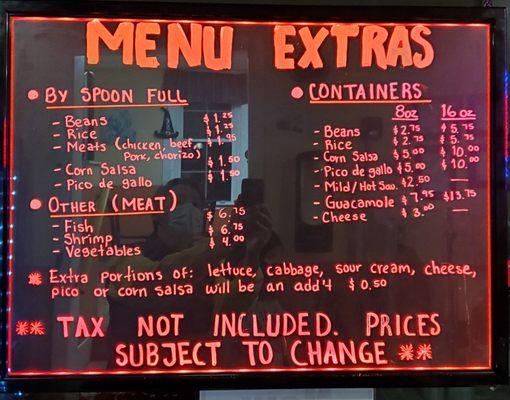 MENU EXTRAS
BY SPOON FULL
- Beans $1.25
- Rice $1.25
- Meats (chicken, beef, $1.95
Pork, chorizo)
- Corn Salsa $1.50
- Pico de gallo $1.50
OTHER (MEAT)
- Fish $6.75
- Shrimp $6.75
- Vegetables $4.00
CONTAINERS
8oz 16oz
- Beans $2.75 $5.75
- Rice $2.75 $5.75
- Corn Salsa $5.00 $10.00
- Pico de gallo $5.00 $10.00
- Mild/Hot Sau. $2.50 —
- Guacamole $7.95 $13.75
- Cheese $3.00 —
* Extra portions of: lettuce, cabbage, sour cream, cheese,
pico or corn salsa will be an add'l $0.50
** TAX NOT INCLUDED. PRICES
SUBJECT TO CHANGE **